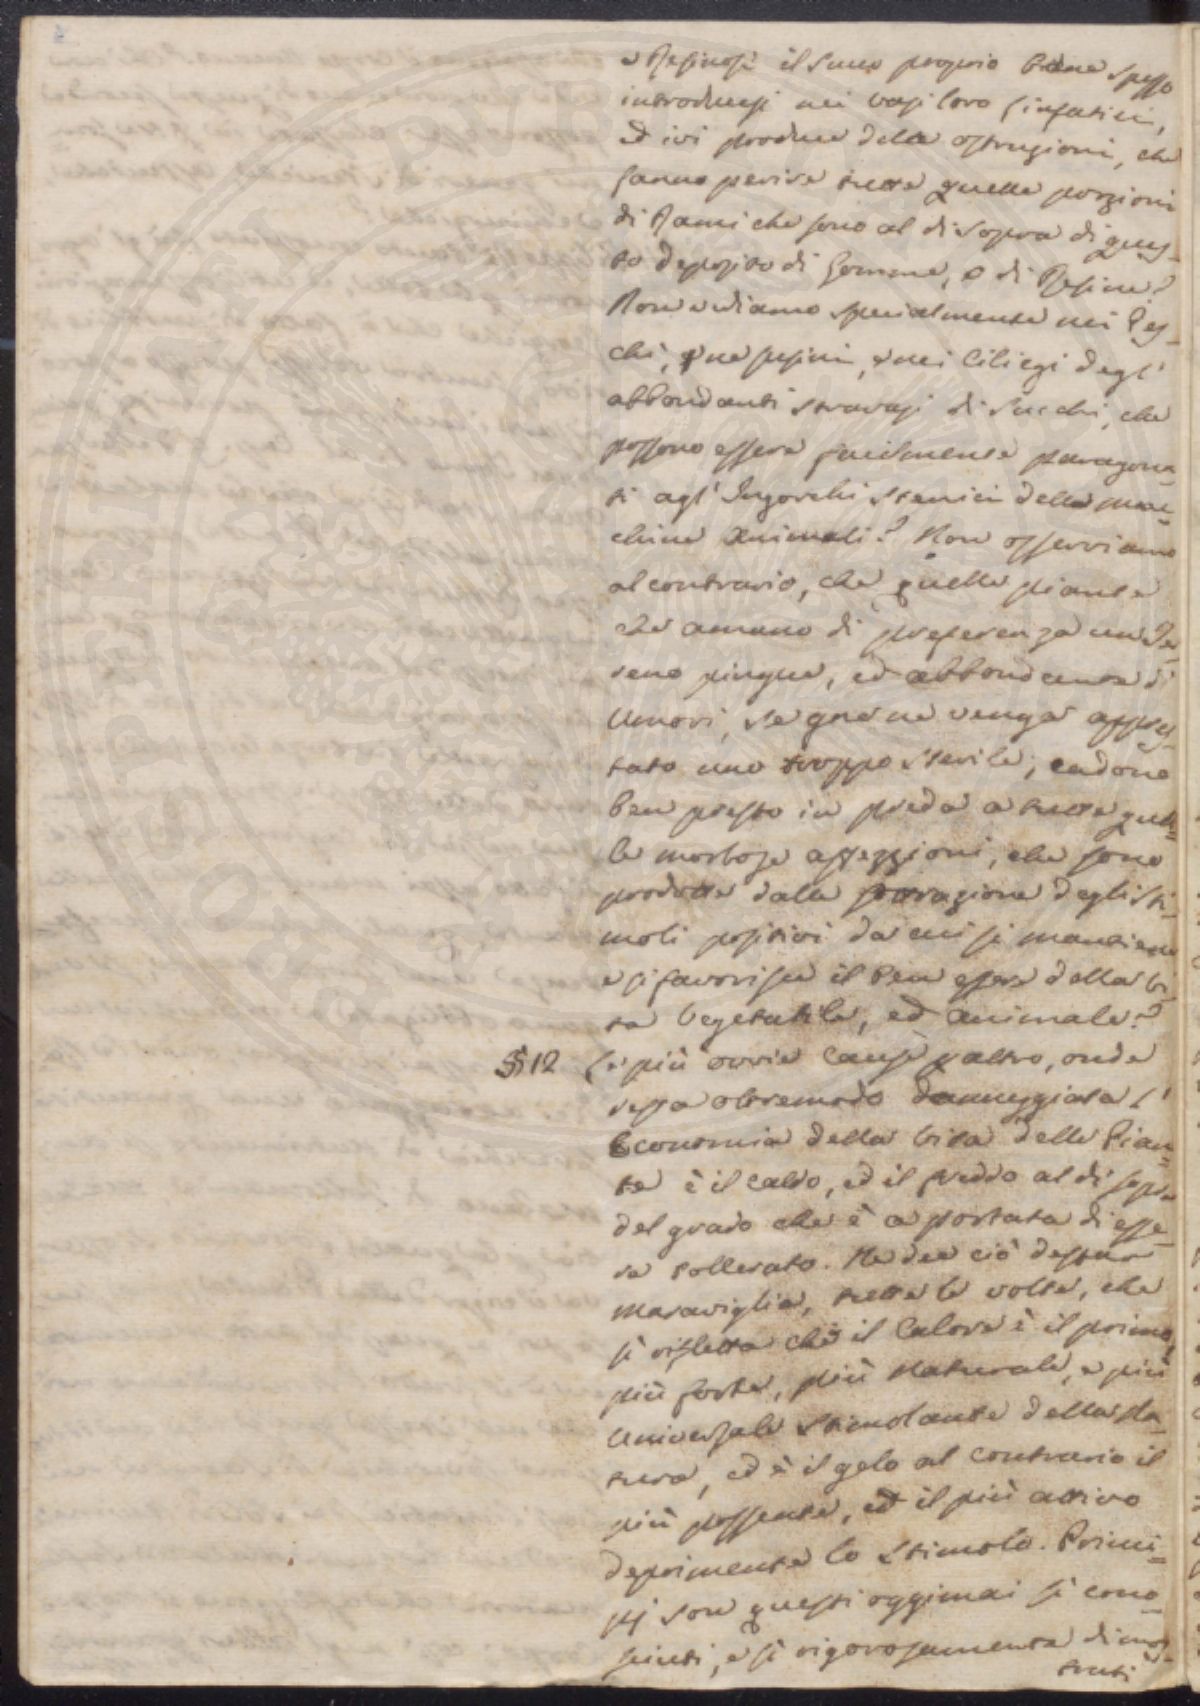 e Resinosi il Suco proprio bene spesso
introdursi nei vasi loro linfatici,
ed ivi produrre delle ostruzioni, che
fanno perire tutte quelle porzioni
di Rami che sono al di sopra di ques=
to deposito di Gomme, o di Resine?
Non vediamo specialmente nei Pes=
chi, ne susini, e nei Ciliegi degl'
abbondanti stravasi di Succhi, che
possono essere facilmente paragona=
ti agl' Ingorghi stenici della mac=
china Animali? Non osserviamo
al contrario, che quelle piante
che amano di preferenza un Ter=
reno pingue, ed abbondante di
Umori, se gne ne venga appres=
tato uno troppo sterile, cadono
ben presto in preda a tutte quel=
le morbose affezzioni, che sono
prodotte dalla sottrazione degli sti=
moli positivi da cui si mantiene
e si favorisce il ben essere della vi=
ta Vegetabile, ed animale?
§ 12 Le più ovvie cause p altro, onde
resta oltremodo danneggiata l'
Economia della vita delle Pian=
te è il caldo, ed il freddo al di sopra
del grado che è a portata di esse=
re tollerato. Ne dee ciò destar
maraviglia, tutte le volte, che
si rifletta che il Calore è il primo,
più forte, più naturale, e più
universale stimolante della Na=
tura, ed è il gelo al contrario il
più possente, ed il più attivo
deprimente lo stimolo. Princi=
pj son questi oggimai sì cono=
sciuti, e sì rigorosamente dimos=
trati